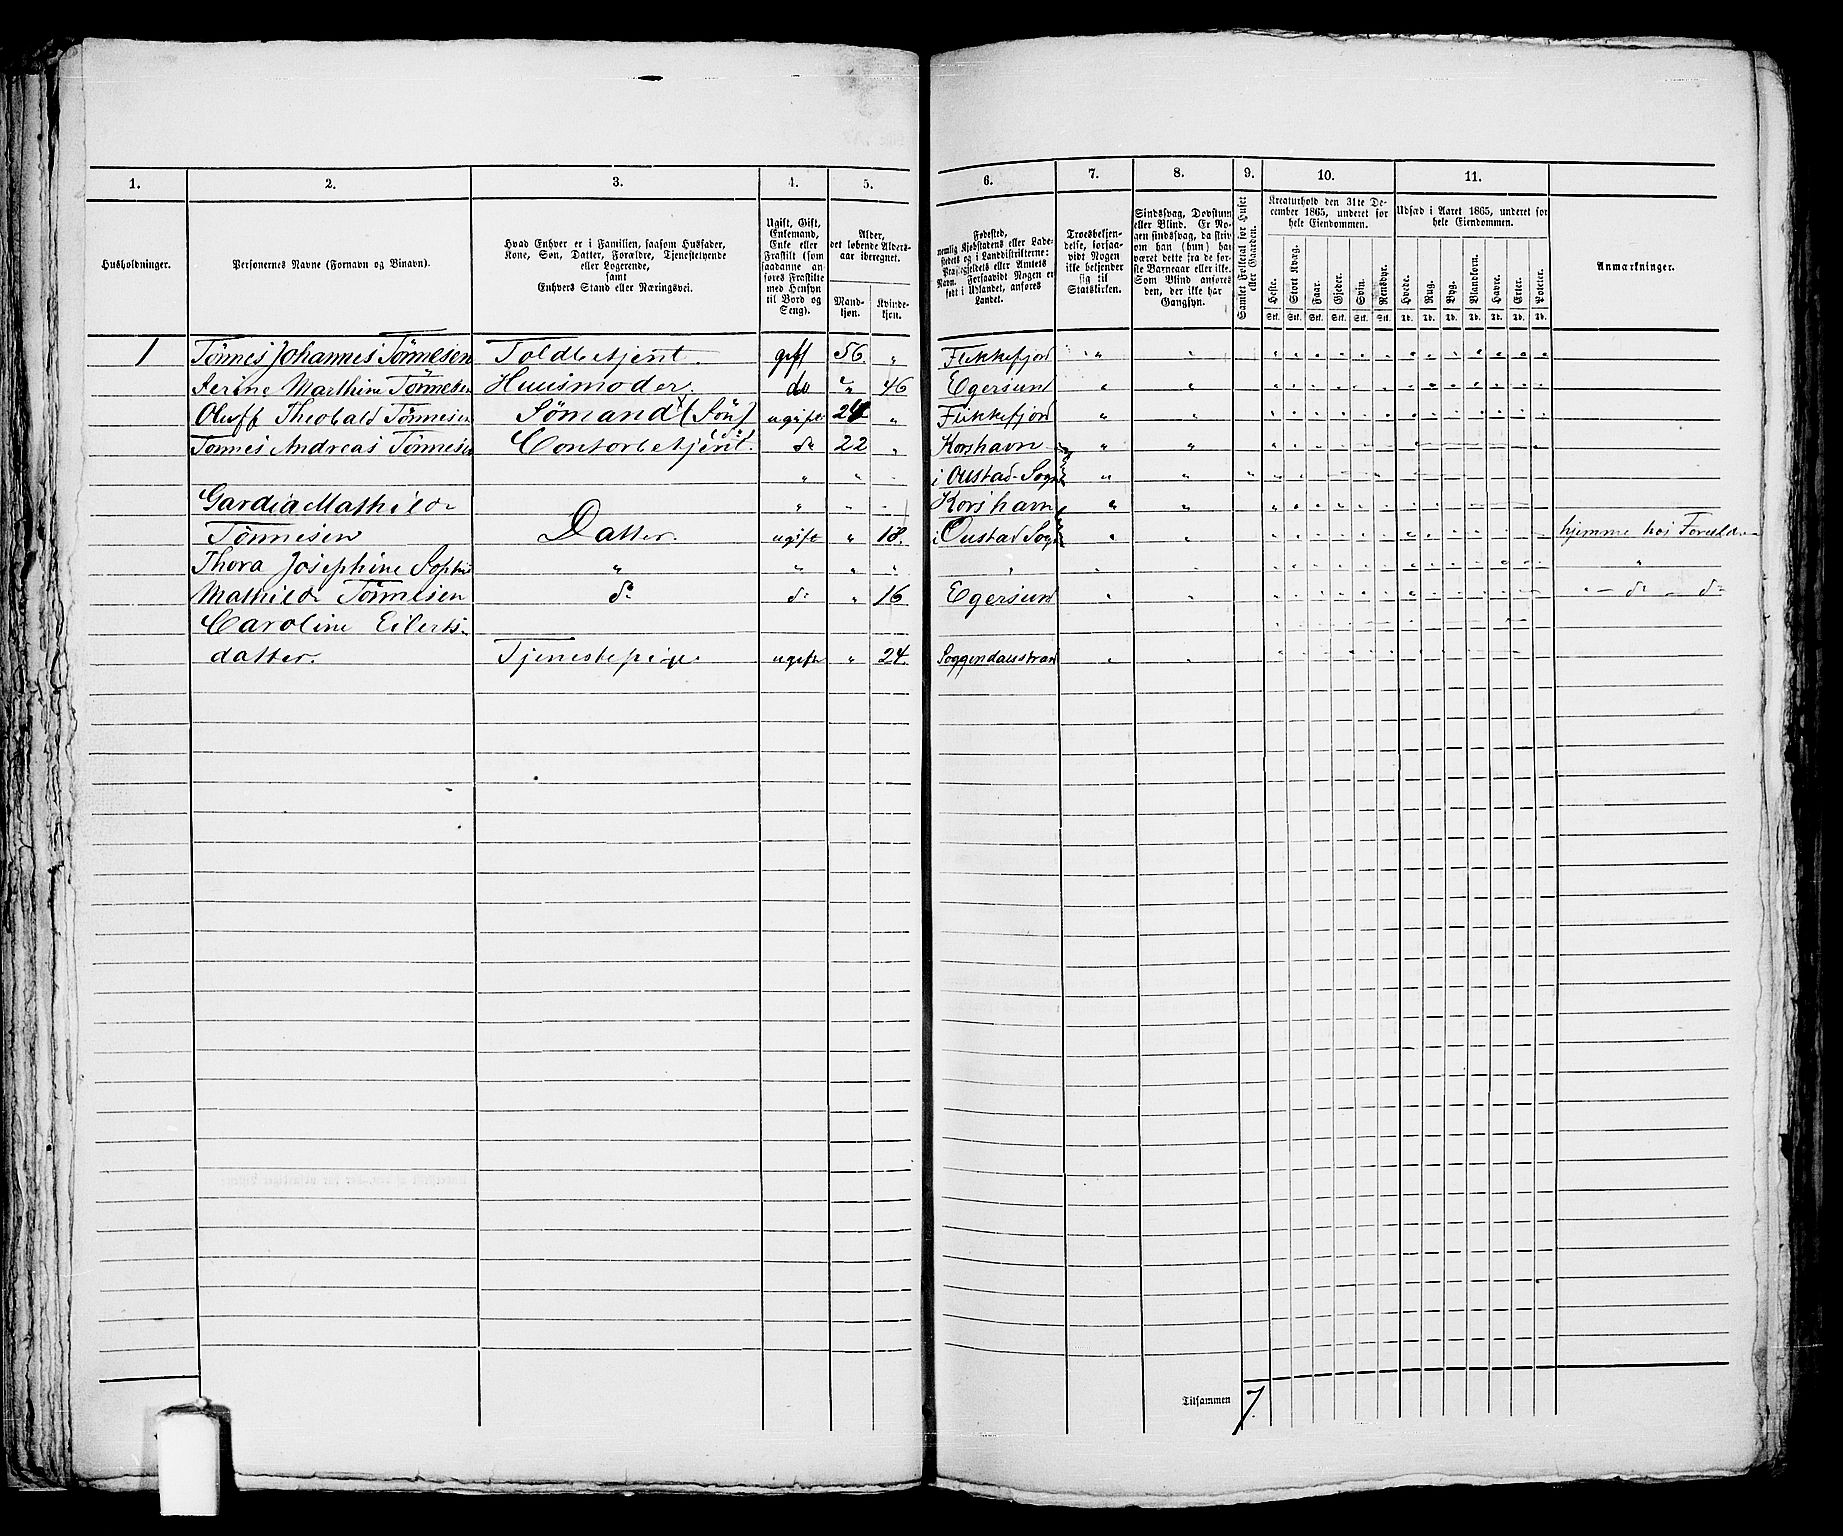 1. 2. 3. 4. 5. 6. 7. 8. 9. 10. 11.
Husholdninger.
Personernes Navne (Fornavn og Binavn).
Hvad Enhver er i Familien, saasom Husfader,
Kone, Søn, Datter, Forældre, Tjenestetyende
eller Logerende,
samt
Enhvers Stand eller Næringsvei.
Ugift, Gift,
Enkemand,
Enke eller
Fraskilt (som
saadanne an-
føres Fraskilte
med Hensyn
til Bord og
Seng).
Alder,
det løbende Alders-
aar iberegnet.
Mand-
kjøn.
Kvinde-
kjøn.
Fødested,
nemlig Kjøbstadens eller Lade-
stedets og i Landdistrikterne:
Præstegjeldets eller Amtets
Navn. Forsaavidt Nogen er
født i Udlandet, anføres
Landet.
Troesbekjen-
delse, forsaa-
vidt Nogen
ikke bekjender
sig til
Statskirken.
Sindssvag, Døvstum
eller Blind. Er No-
gen sindssvag, da skriv
om han (hun) har
været dette fra de før-
ste Barneaar eller ikke.
Som Blind anføres
den, der ikke har
Gangsyn.
Samlet Folketal for Huset
eller Gaarden.
Kreaturhold den 31te De-
cember 1865, underet for
hele Eiendommen.
Heste. Stort Kvæg. Faar. Gjeder. Svin. Rensdyr.
Stk. Stk. Stk. Stk. Stk. Stk.
Udsæd i Aaret 1865, underet for
hele Eiendommen.
Hvede. Rug. Byg. Blandkorn. Havre. Erter. Poteter.
Td. Td. Td. Td. Td. Td. Td.
Anmærkninger.
1 Tønnes Johannes Tønnesen Toldbetjent gift 56. " Flekkefjord
Serine Marthine Tønnesen Huusmoder do " 46 Egersund
Oluff Theobald Tønnesen Sømand (Søn) ugift 24 " Flekkefjord
Tønnes Andreas Tønnesen Contorbetjent. do 22 " Korshavn
i Oustad Sogn
Gardia Mathilde Korshavn
Tønnesen Datter. ugift " 18. i Oustad Sogn hjemme hos Foreldre
Thora Josephine Sophie " " " " "
Mathilde Tønnesen do do " 16 Egersund " - do - do
Caroline Eilerts-
datter. Tjenestepige ugift " 24. Soggendalsstrand
Tilsammen 7.